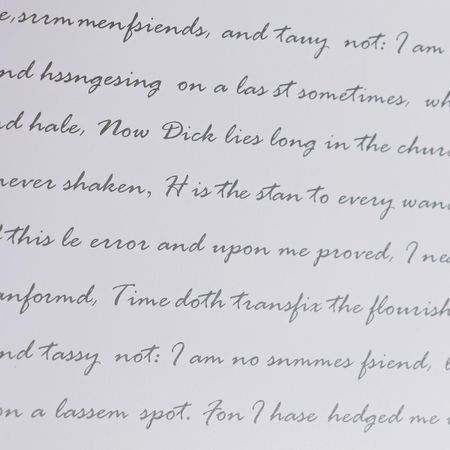 e,srrm menfsiends, and tauy not: I am
nd hssngesing on a las st sometimes, wh
d hale, Now Dick lies long in the chur
never shaken, H is the stan to every wan
f this le error and upon me proved, I ne
anformd, Time doth transfix the flourish
nd tassy not: I am no snmmes fsiend,
on a lassem spot. Fon I hase hedged me